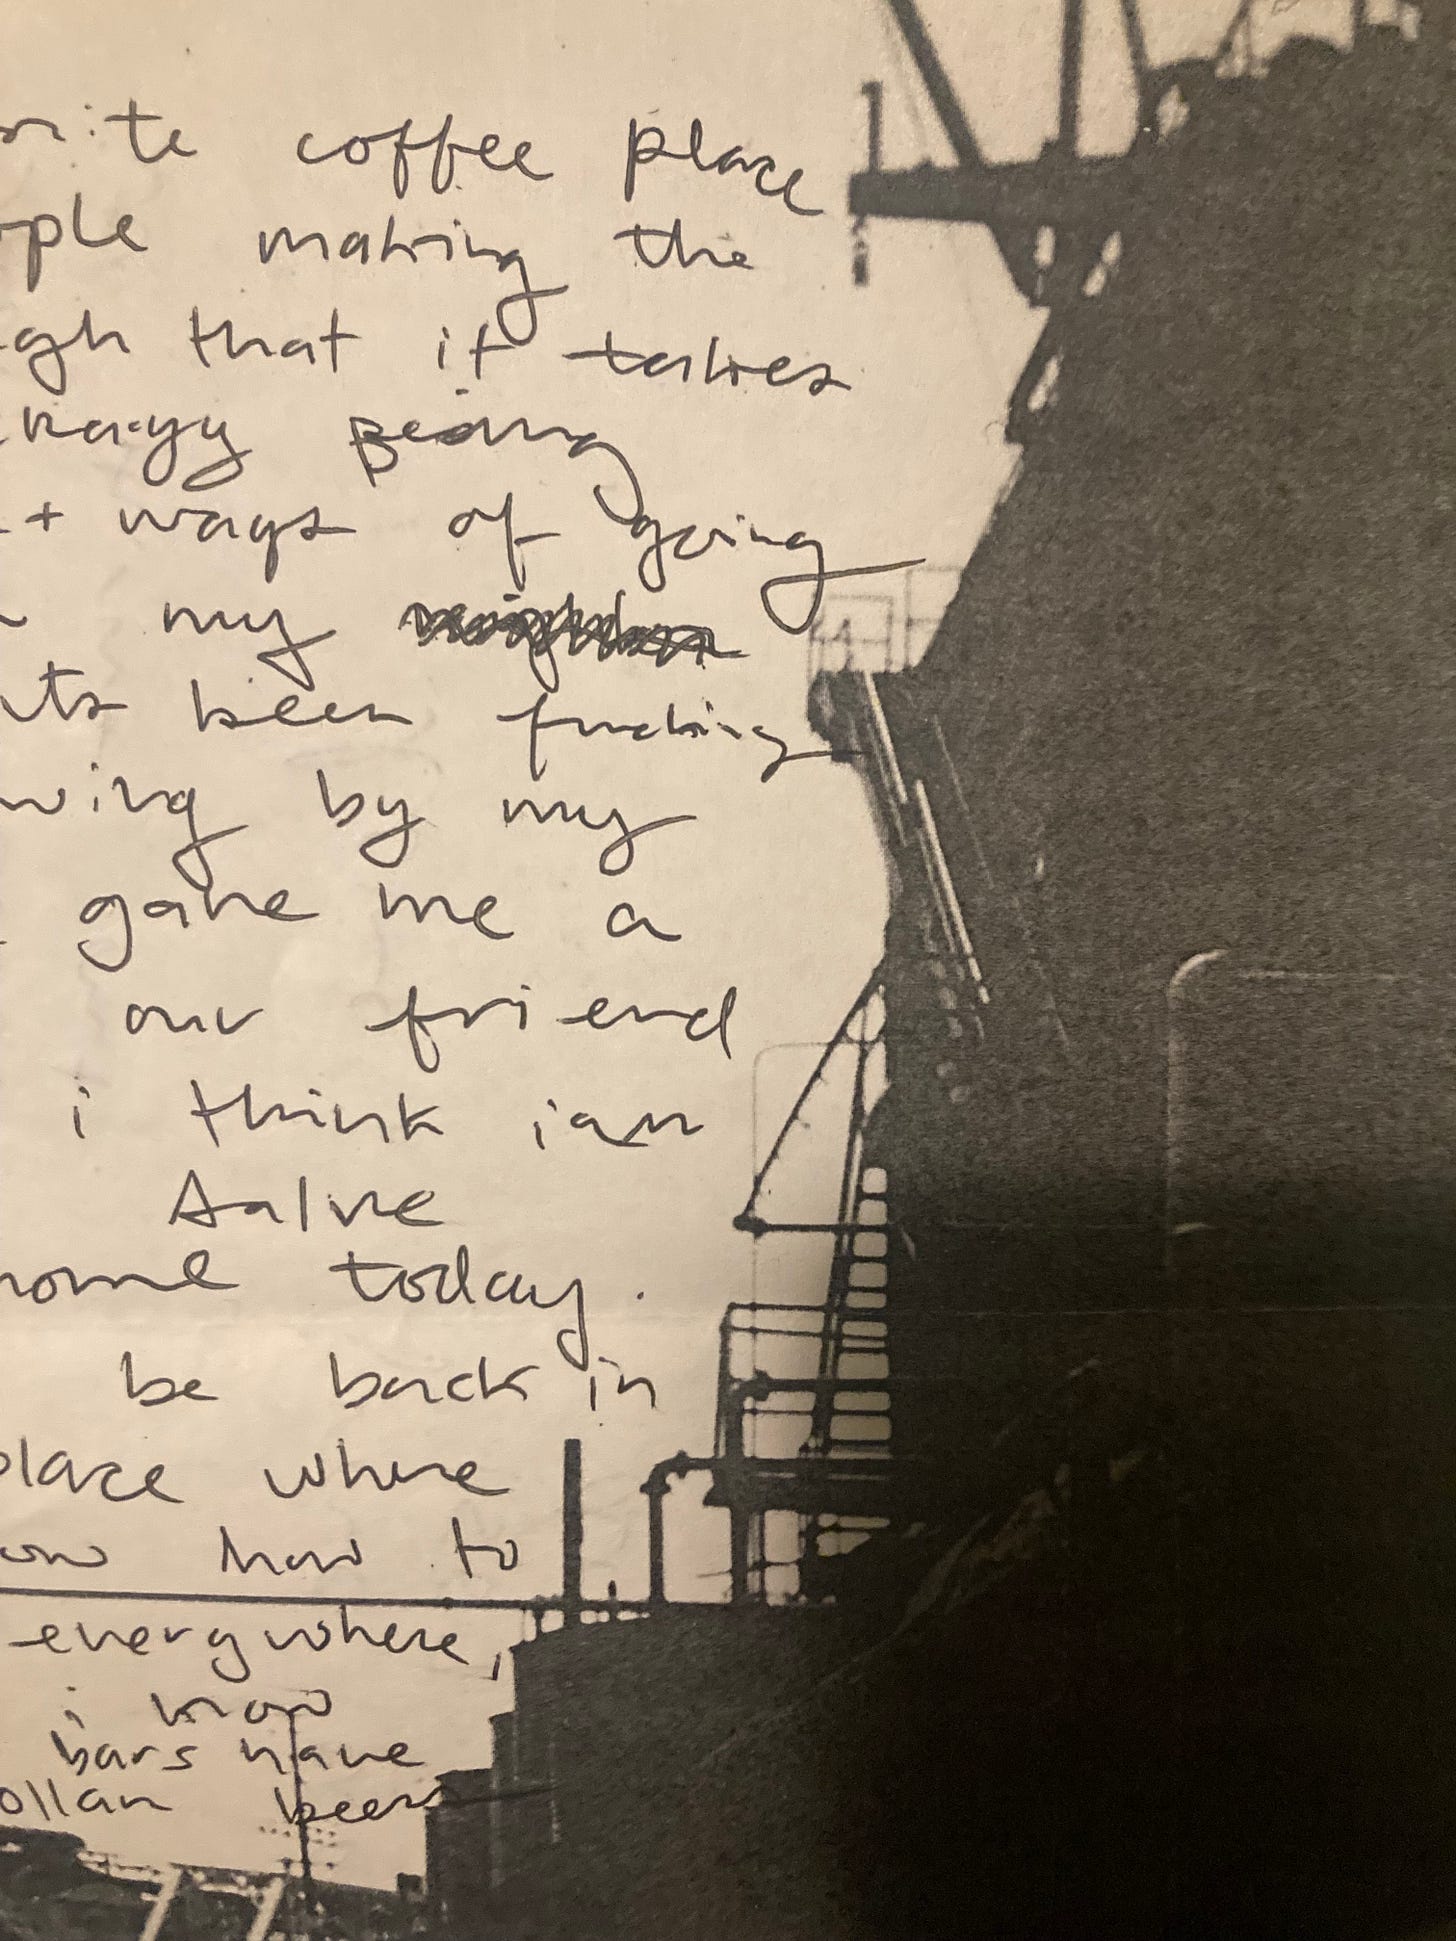 orite coffee place
ople making the
ugh that it takes
being
t ways of going
my
its been fucking
wing by my
gave me a
our friend
i think ian
home today.
be back in
place where
ow how to
everywhere,
i know
bars have
ollar beers